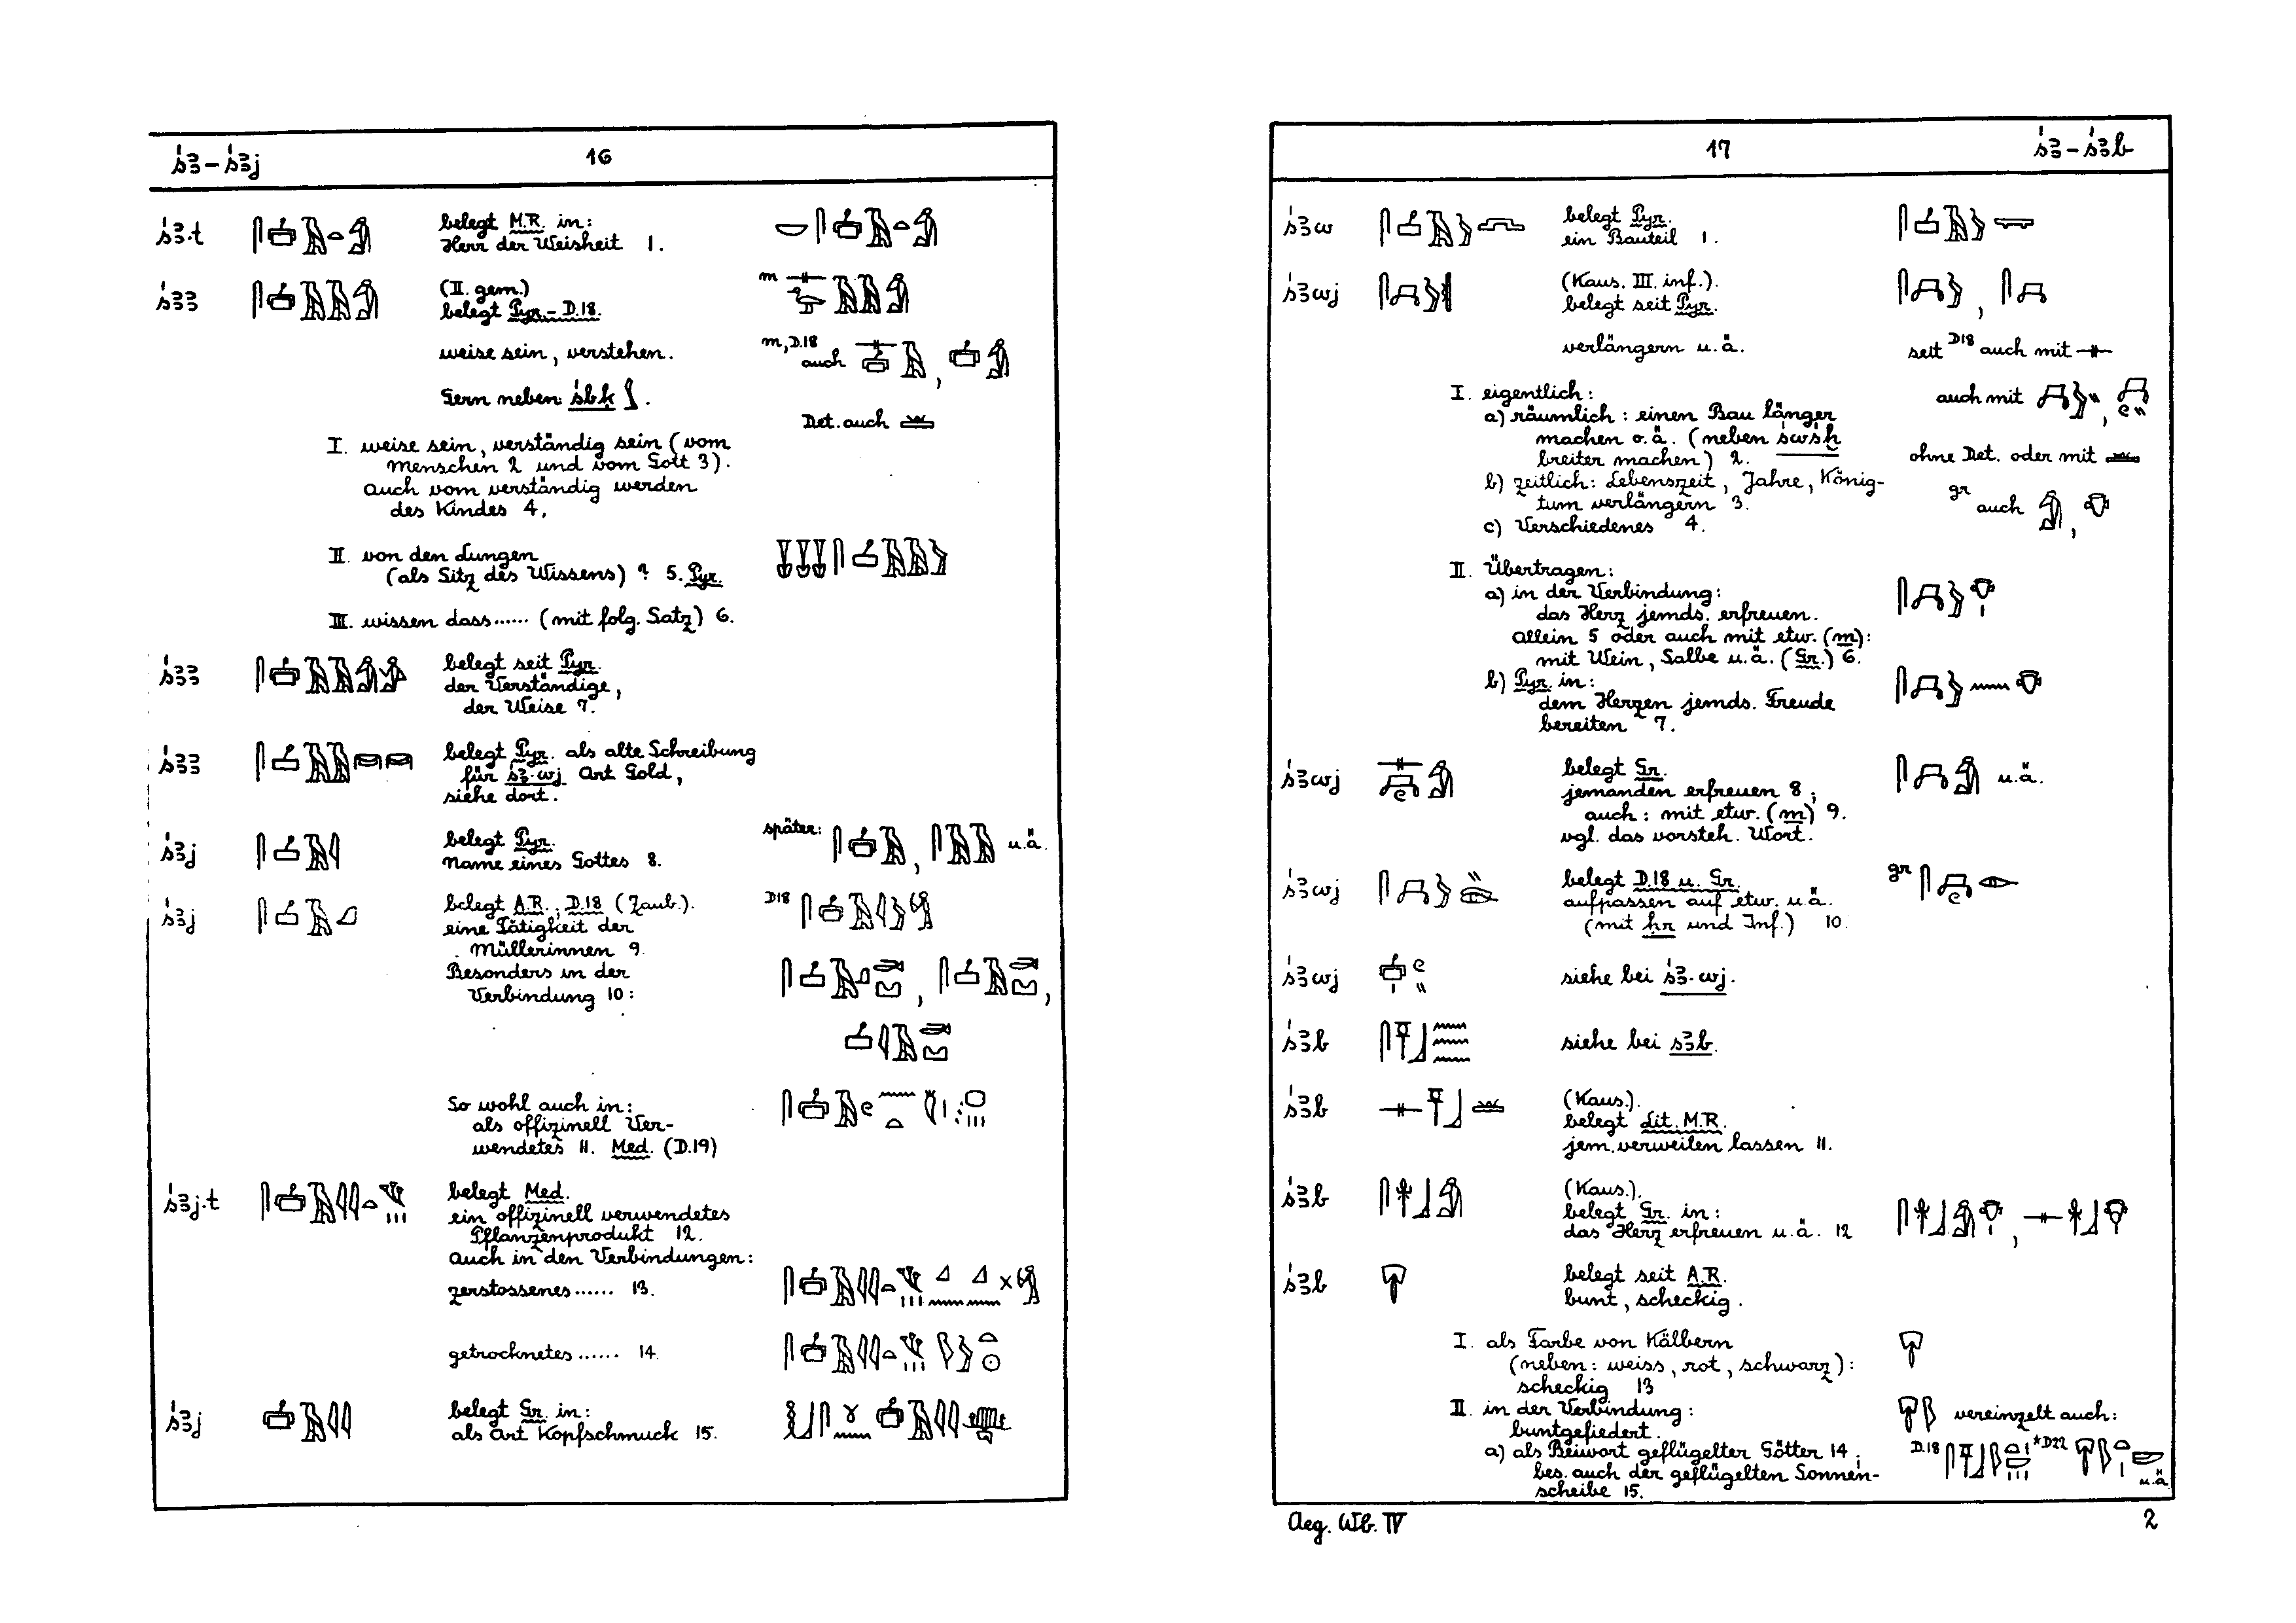 ś3 – ś3j 16
ś3·t belegt M.R. in:
Herr der Weisheit 1.
ś33 (II. gem.) m
belegt Pyr – D.18.
weise sein, verstehen. m, D.18 auch
Gern neben: śbḳ.
Det. auch
I. weise sein, verständig sein (vom
Menschen 2 und vom Gott 3).
Auch vom verständig werden
des Kindes 4.
II. von den Lungen
(als Sitz des Wissens)? 5. Pyr.
III. wissen dass...... (mit folg. Satz) 6.
ś33 belegt seit Pyr.
der Verständige,
der Weise 7.
ś33 belegt Pyr. als alte Schreibung
für ś3·wj Art Gold,
siehe dort.
ś3j belegt Pyr. später: u.ä.
Name eines Gottes 8.
ś3j belegt A.R., D.18 (Zaub.). D18
eine Tätigkeit der
Müllerinnen 9.
Besonders in der
Verbindung 10:
So wohl auch in:
als offizinell Ver-
wendetes 11. Med. (D.19)
ś3j·t belegt Med.
ein offizinell verwendetes
Pflanzenprodukt 12.
Auch in den Verbindungen:
zerstossenes...... 13.
getrocknetes...... 14.
ś3j belegt Gr. in:
als Art Kopfschmuck 15.
17 ś3 – ś3b
ś3w belegt Pyr.
ein Bauteil 1.
ś3wj (Kaus. III. inf.).
belegt seit Pyr.
verlängern u.ä. seit D18 auch mit
I. eigentlich: auch mit
a) räumlich: einen Bau länger
machen o.ä. (neben śwśḫ
breiter machen) 2. ohne Det. oder mit
b) zeitlich: Lebenszeit, Jahre, König-
tum verlängern 3. gr auch
c) Verschiedenes 4.
II. Übertragen:
a) in der Verbindung:
das Herz jemds. erfreuen.
Allein 5 oder auch mit etw. (m):
mit Wein, Salbe u.ä. (Gr.) 6.
b) Pyr. in:
dem Herzen jemds. Freude
bereiten 7.
ś3wj belegt Gr. u.ä.
jemanden erfreuen 8;
auch: mit etw. (m) 9.
vgl. das vorsteh. Wort.
ś3wj belegt D.18 u. Gr. gr
aufpassen auf etw. u.ä.
(mit ḥr und Inf.) 10.
ś3wj siehe bei ś3·wj.
ś3b siehe bei s3b.
ś3b (Kaus.).
belegt Lit. M.R.
jem. verweilen lassen 11.
ś3b (Kaus.).
belegt Gr. in:
das Herz erfreuen u.ä. 12
ś3b belegt seit A.R.
bunt, scheckig.
I. als Farbe von Kälbern
(neben: weiss, rot, schwarz):
scheckig 13
II. in der Verbindung: vereinzelt auch:
buntgefiedert.
a) als Beiwort geflügelter Götter 14; D.18 *D22 u.ä.
bes. auch der geflügelten Sonnen-
scheibe 15.
Aeg. Wb. IV 2